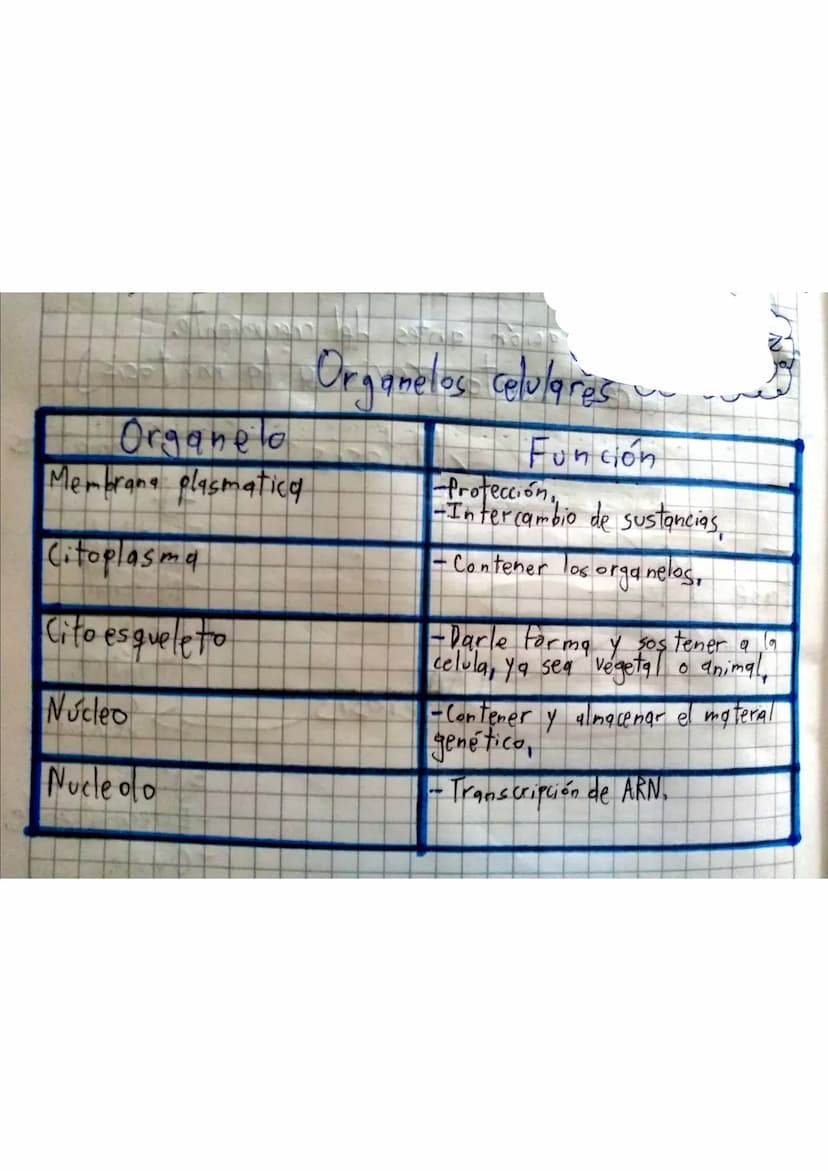 Organelos celulares
Organelo
Función
Membrana plasmatica
-Protección,
-Intercambio de sustancias,
Citoplasma
- Contener los organelos,
Citoesqueleto
-Darle forma y sostener a la
celula, ya sea vegetal o animal,
Núcleo
-Contener y almacenar el materal
genético,
Nucleolo
- Transcripción de ARN,